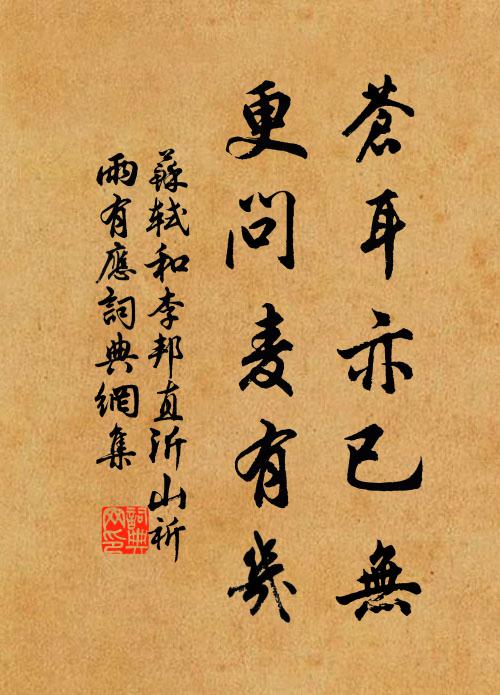 蒼耳亦已無
更問麦有幾
蘇軾和李邦直沂山祈
雨有應詞典網集
詞典网印